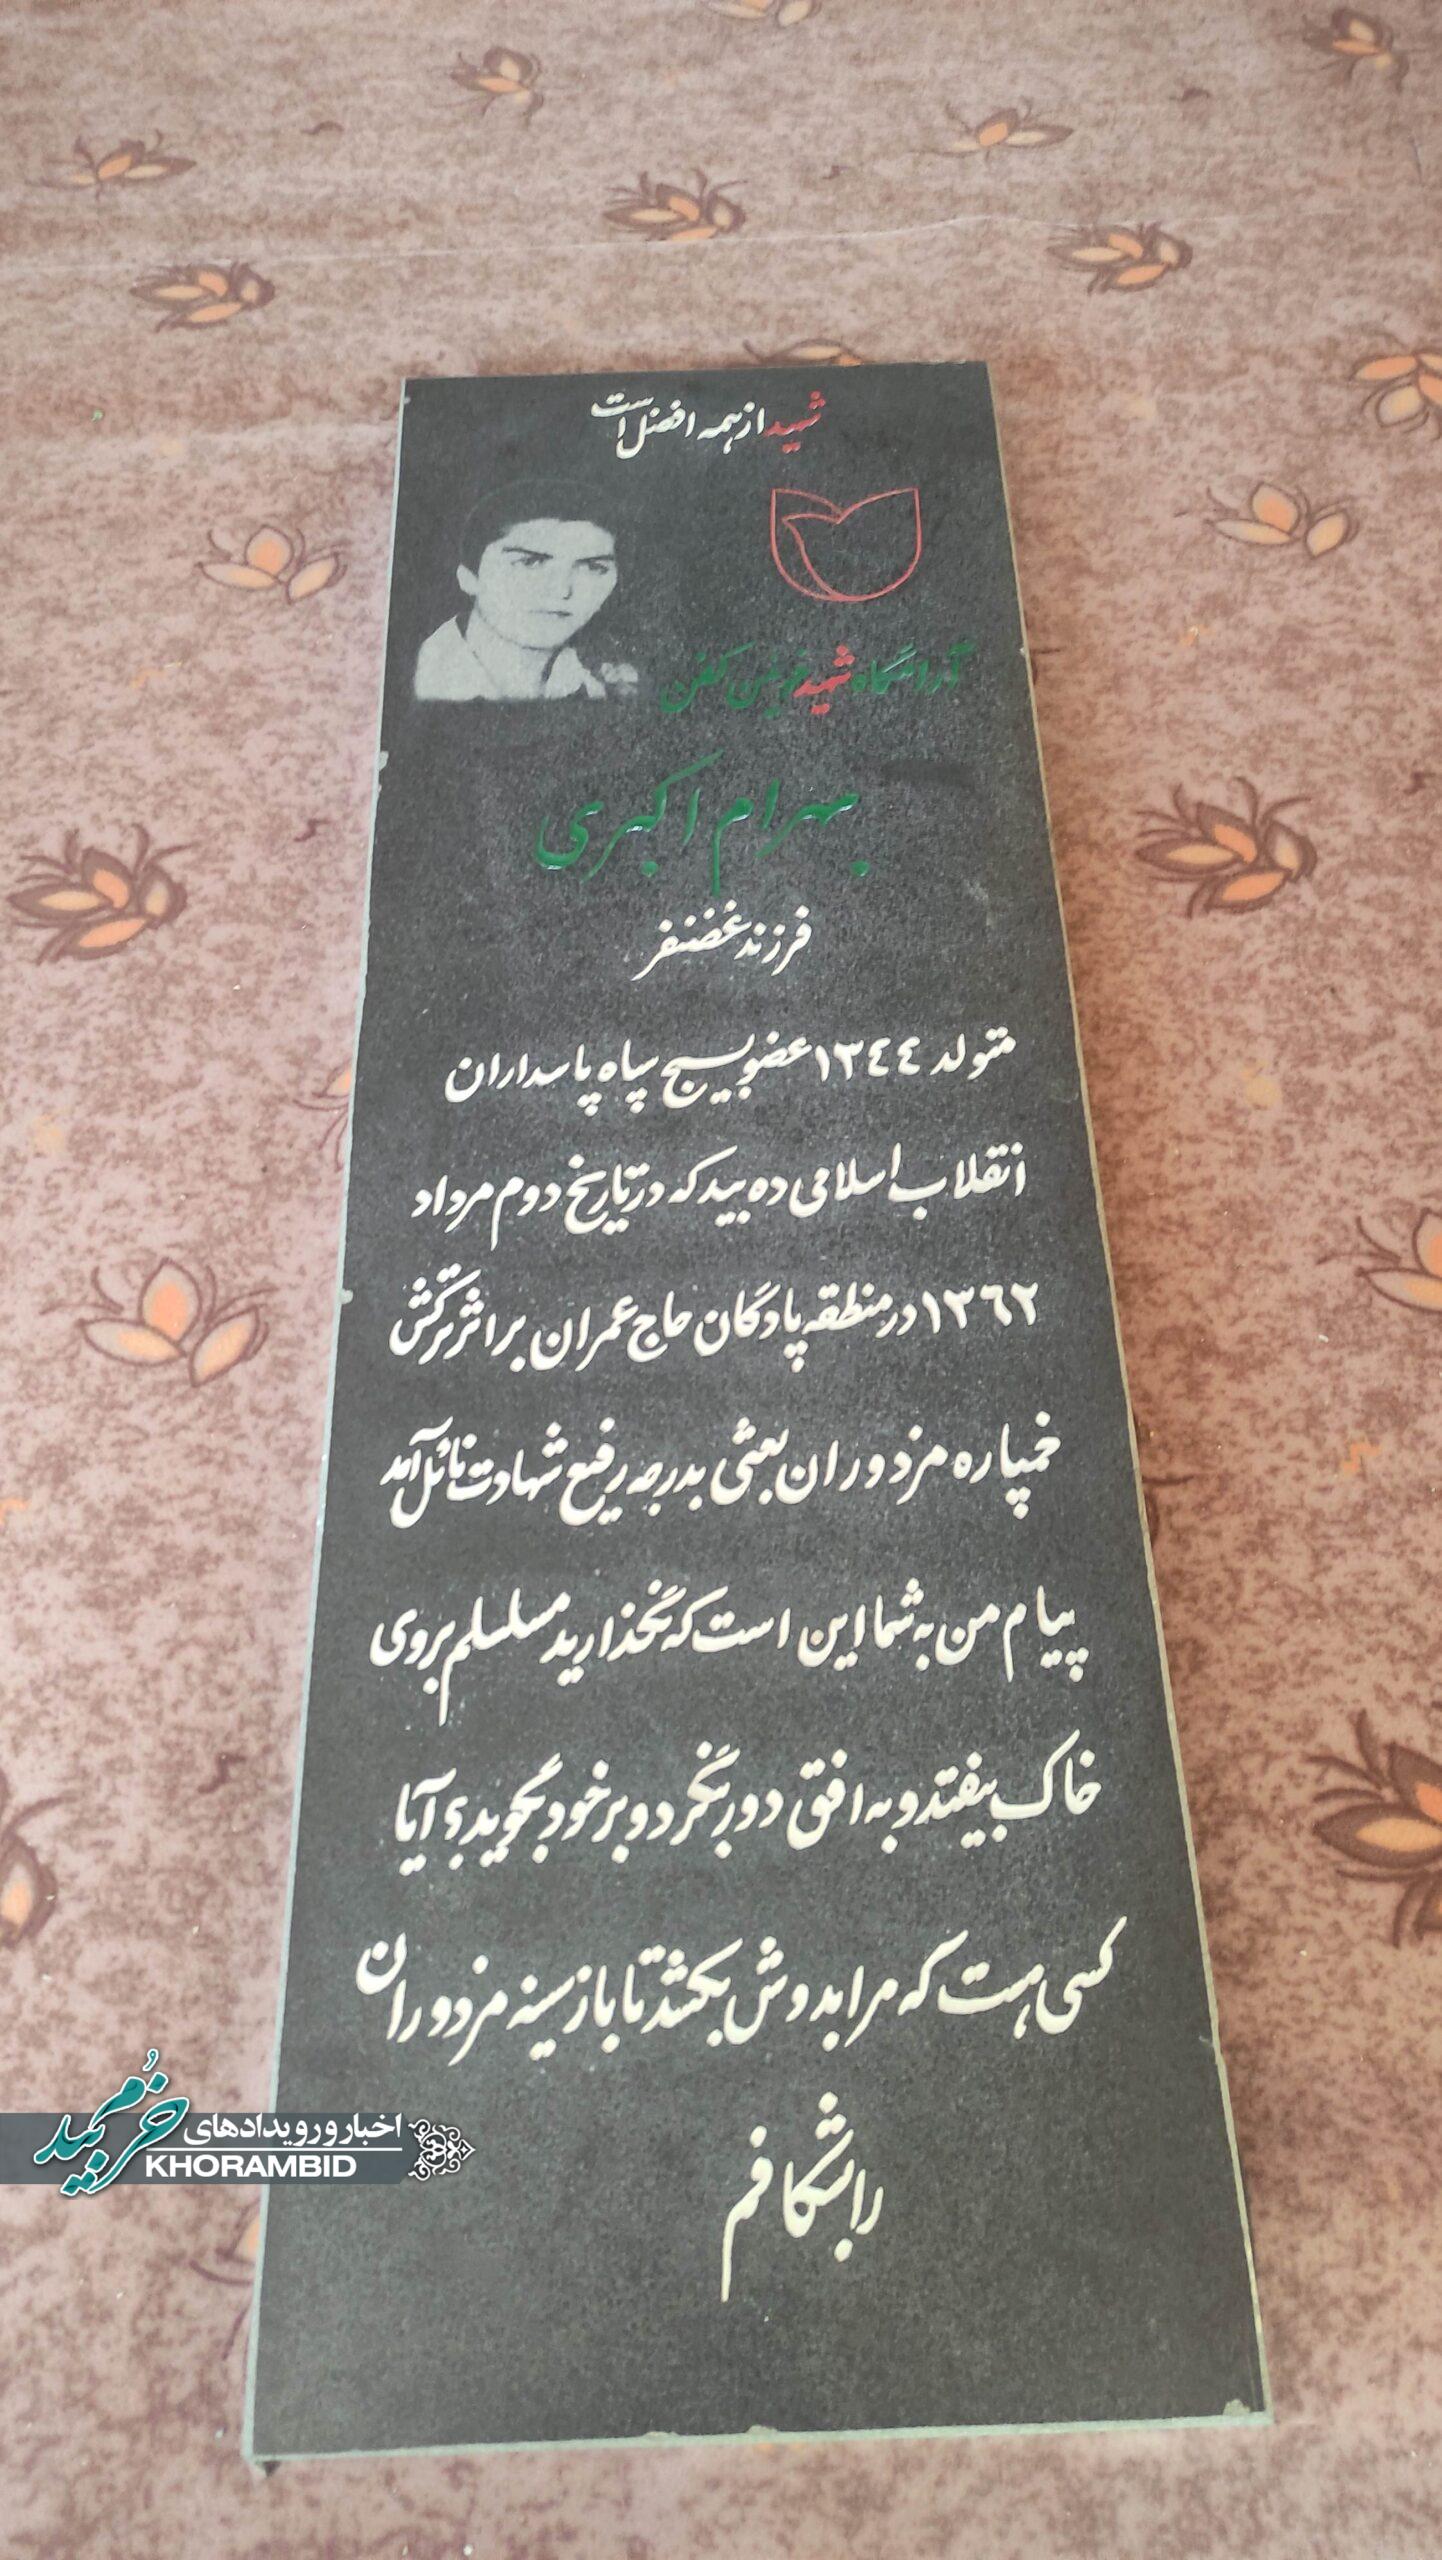 شهید از همه افضل است
آرامگاه شهید خونین کفن
بهرام اکبری
فرزند غضنفر
متولد ۱۳۴۴ عضو بسیج سپاه پاسداران
انقلاب اسلامی ده بید که در تاریخ دوم مرداد
۱۳۶۲ در منطقه پادگان حاج عمران بر اثر ترکش
خمپاره مزدوران بعثی بدرجه رفیع شهادت نائل آمد
پیام من به شما این است که نگذارید مسلسلم بروی
خاک بیفتد و به افق دور بنگرد و بر خود بگوید؟ آیا
کسی هست که مرا بدوش بکشد تا باز سینه مزدوران
را بشکافم
اخبار و رویدادهای
خرمبید
KHORAMBID